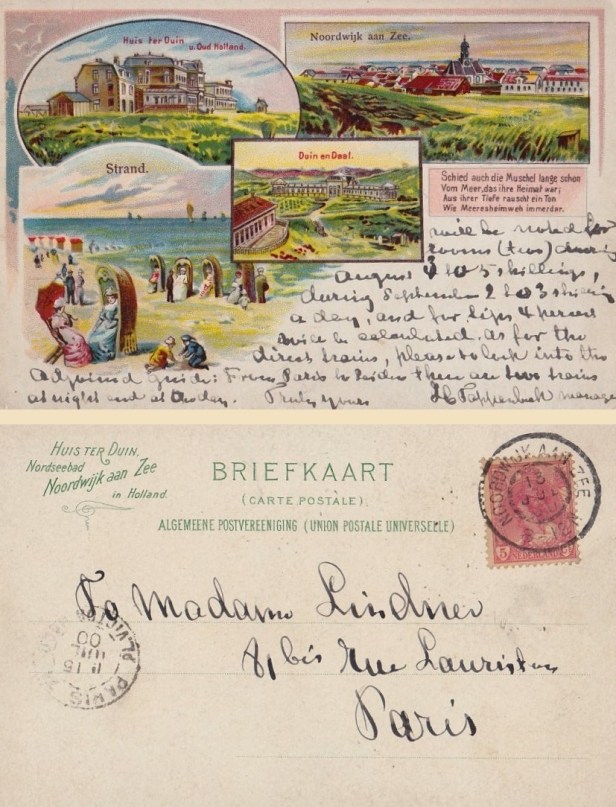 Huis ter Duin
u. Oud Holland.
Noordwijk aan Zee.
Strand.
Duin en Daal.
Schied auch die Muschel lange schon
Vom Meer, das ihre Heimat war;
Aus ihrer Tiefe rauscht ein Ton
Wie Meeresheimweh immerdar.
will be noted for
rooms (two) during
August 3 to 5 shillings,
during September 2 to 3 shilling
a day, and for tips 4 percent
will be calculated. As for the
direct trains, please to look into the
adjoined guide: From Paris to Leiden there are two trains
at night and at the day. Truly yours
Tappenbeck manager
HUIS TER DUIN,
Nordseebad
Noordwijk aan Zee
in Holland.
BRIEFKAART
(CARTE POSTALE)
ALGEMEENE POSTVEREENIGING (UNION POSTALE UNIVERSELLE)
NOORDWIJK AAN ZEE
5
NEDERLAND
To Madame Lindner
81 bis Rue Lauriston
Paris
PARIS
15
JUIL
00